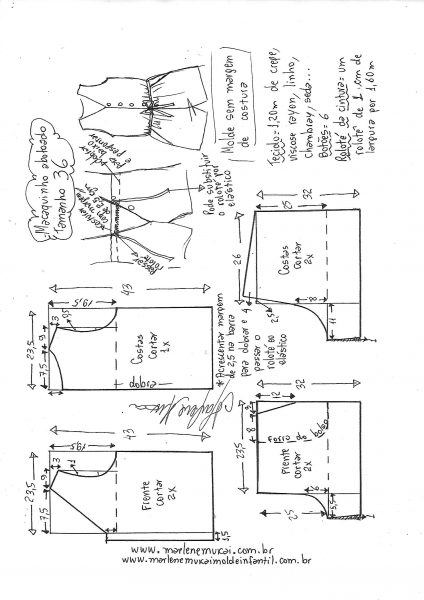 Macaquinho abotoado
Tamanho 36
Molde sem margem
de costura
Tecido = 1,20m de crepe,
viscose rayon, linho,
Chambray, seda...
Botões = 6
Rolotê da cintura = um
rolotê de 1 cm de
largura por 1,60m
Pode substituir
o rolotê por
elástico
* Acrescentar margem
de 2,5 na barra
para dobrar e
passar o
rolotê ou
elástico
43
19,5
9,5
3
9
23,5
7,5
Costas
cortar
1x
dobra
32
25
26
4
2,5
8
11
1
Costas
cortar
2x
43
19,5
3
1
9
23,5
7,5
1,5
Frente
cortar
2x
32
12
3
8
23,5
forro do
bolso
Frente
cortar
2x
6
25
5,5
1
www.marlenemukai.com.br
www.marlenemukaimoldeinfantil.com.br